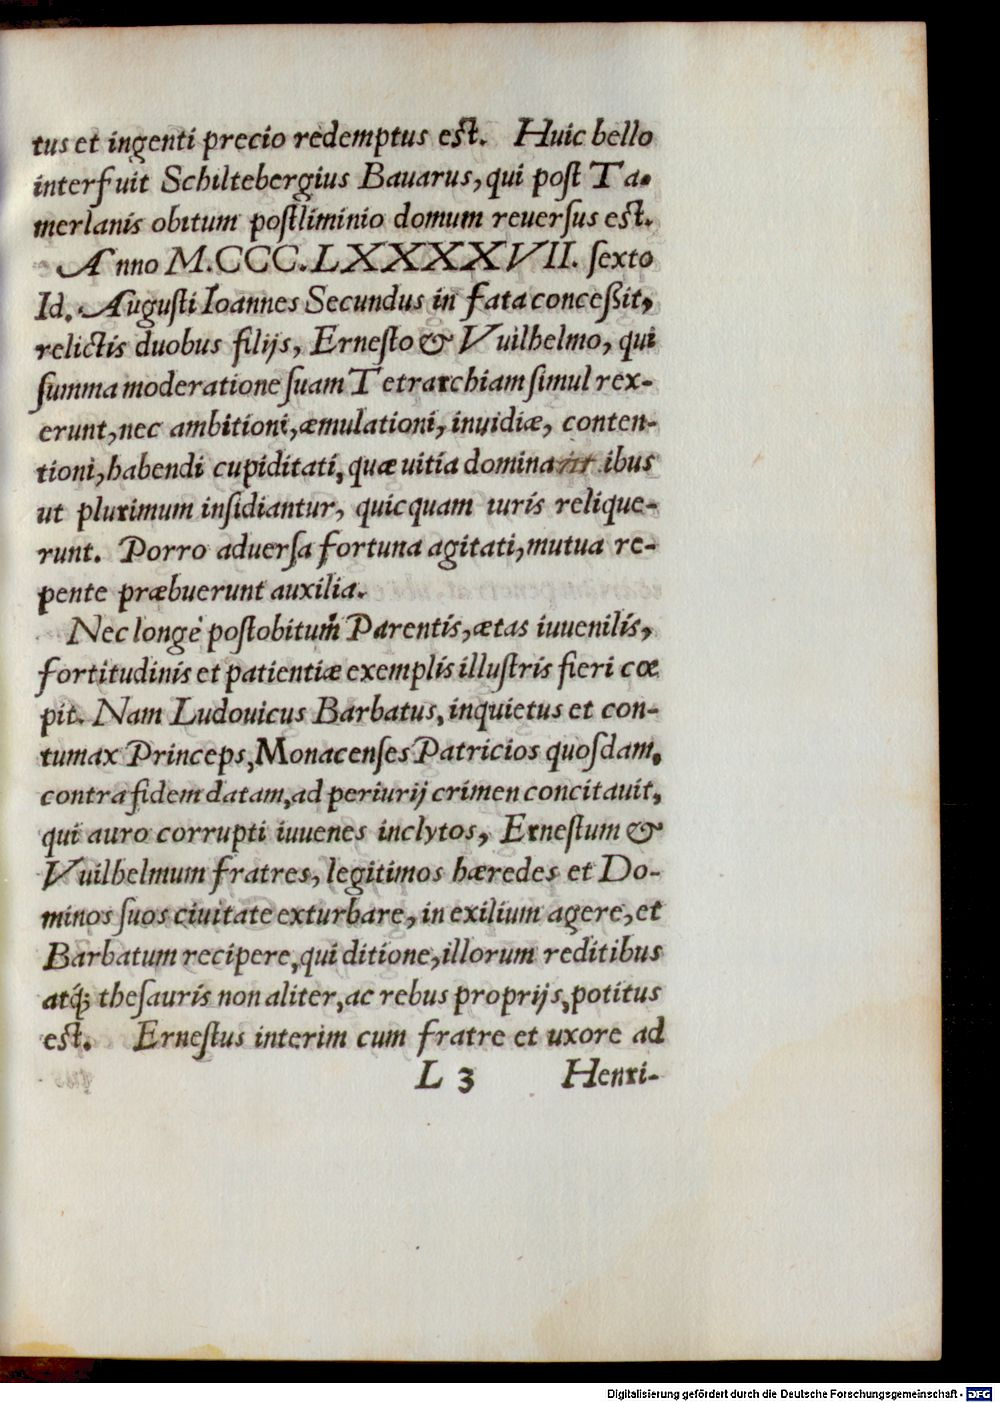 tus et ingenti precio redemptus est. Huic bello
interfuit Schiltebergius Bauarus, qui post Ta-
merlanis obitum postliminio domum reuersus est.
Anno M.CCC.LXXXXVII. sexto
Id. Augusti Ioannes Secundus in fata conceßit,
relictis duobus filijs, Ernesto & Vuilhelmo, qui
summa moderatione suam Tetrarchiam simul rex-
erunt, nec ambitioni, æmulationi, inuidiæ, conten-
tioni, habendi cupiditati, quæ uitia domina ibus
ut plurimum insidiantur, quicquam iuris relique-
runt. Porro aduersa fortuna agitati, mutua re-
pente præbuerunt auxilia.
Nec longè post obitum Parentis, ætas iuuenilis,
fortitudinis et patientiæ exemplis illustris fieri cœ
pit. Nam Ludouicus Barbatus, inquietus et con-
tumax Princeps, Monacenses Patricios quosdam,
contra fidem datam, ad periurij crimen concitauit,
qui auro corrupti iuuenes inclytos, Ernestum &
Vuilhelmum fratres, legitimos hæredes et Do-
minos suos ciuitate exturbare, in exilium agere, et
Barbatum recipere, qui ditione, illorum reditibus
atq́; thesauris non aliter, ac rebus proprijs, potitus
est. Ernestus interim cum fratre et uxore ad
L 3 Henri-
Digitalisierung gefördert durch die Deutsche Forschungsgemeinschaft - DFG